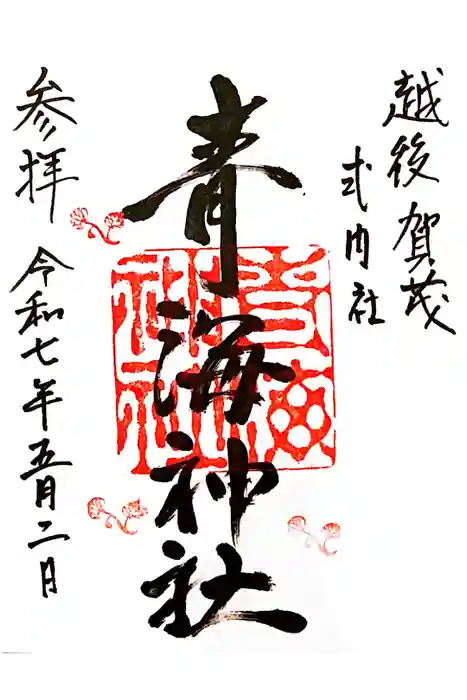 越後賀茂
式内社
青海神社
参拝 令和七年五月二日
青海神社